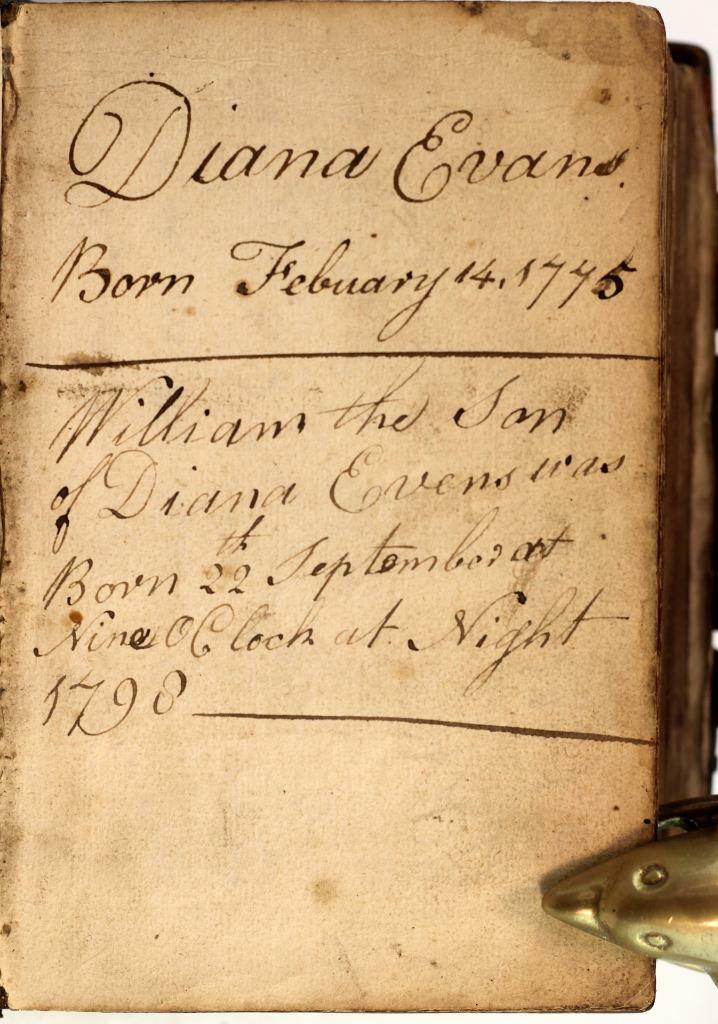 Diana Evans.
Born Febuary 14, 1775
William the Son
of Diana Evens was
Born 22th September at
Nine O Clock at Night
1798